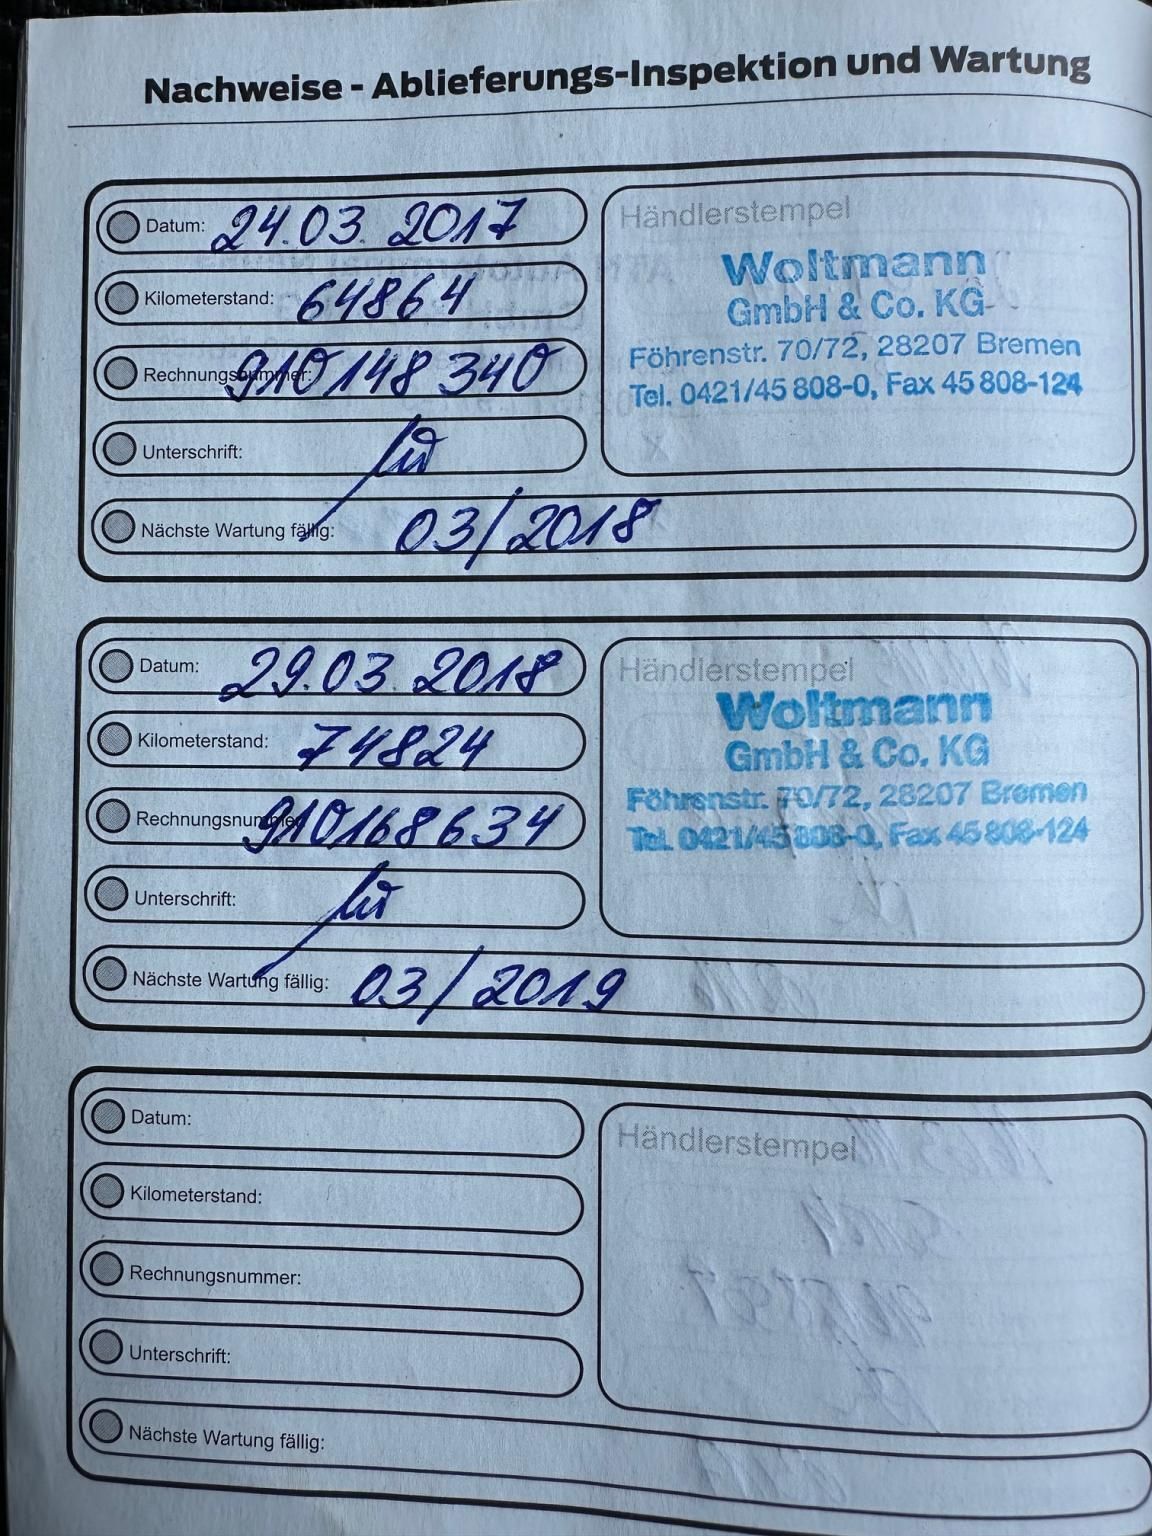 Nachweise - Ablieferungs-Inspektion und Wartung
Datum: 24.03.2017
Kilometerstand: 64864
Rechnungsnummer: 910148340
Unterschrift:
Nächste Wartung fällig: 03/2018
Händlerstempel
Woltmann
GmbH & Co. KG
Föhrenstr. 70/72, 28207 Bremen
Tel. 0421/45 808-0, Fax 45 808-124
Datum: 29.03.2018
Kilometerstand: 74824
Rechnungsnummer: 910168634
Unterschrift:
Nächste Wartung fällig: 03/2019
Händlerstempel
Woltmann
GmbH & Co. KG
Föhrenstr. 70/72, 28207 Bremen
Tel. 0421/45 808-0, Fax 45 808-124
Datum:
Kilometerstand:
Rechnungsnummer:
Unterschrift:
Nächste Wartung fällig:
Händlerstempel